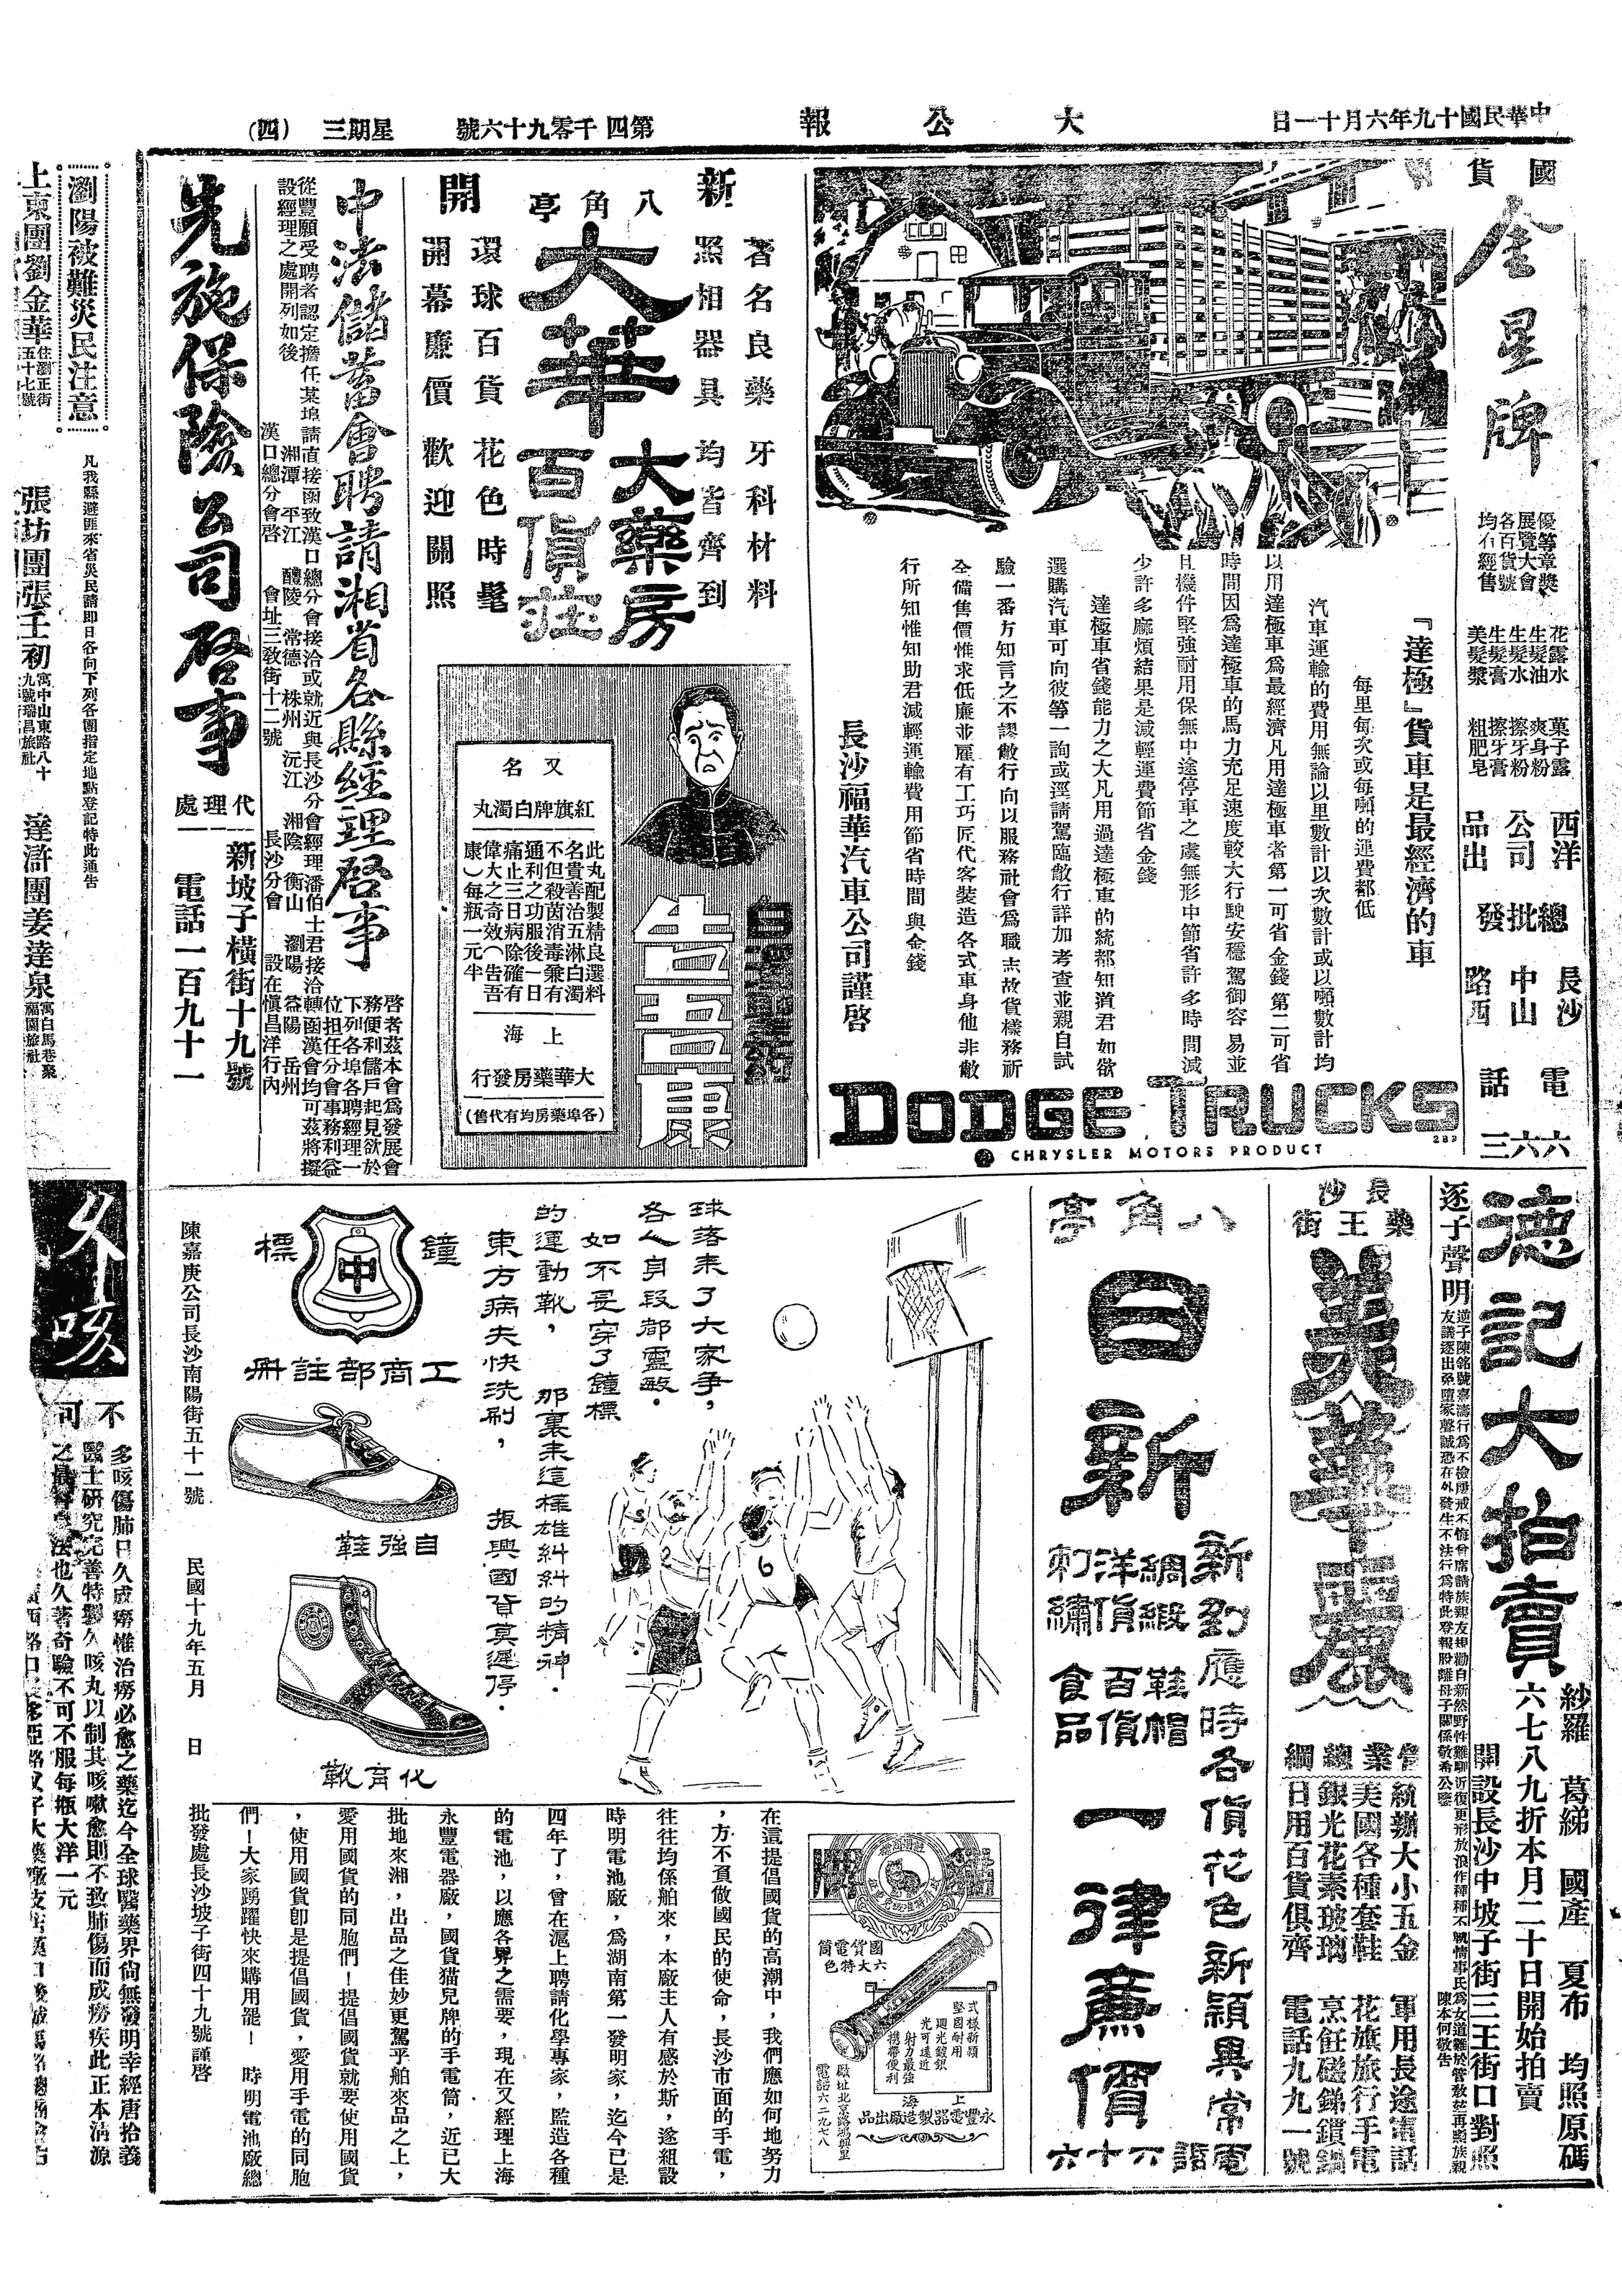 中華民國十九年六月十一日
大公報
第四千零九十六號
星期三
(四)
國貨
金星牌
優等章獎
展覽大會
各百貨號
均有經售
花露水
生髮油
生髮水
生髮膏
美髮漿
菓子露
爽身粉
擦牙粉
擦牙膏
粗肥皂
西洋公司出品
總批發
長沙中山路西
電話
六六三
『達極』貨車是最經濟的車
每里每次或每噸的運費都低
汽車運輸的費用無論以里數計以次數計或以噸數計均
以用達極車爲最經濟凡用達極車者第一可省金錢第二可省
時間因爲達極車的馬力充足速度較大行駛安穩駕御容易並
且機件堅強耐用保無中途停車之虞無形中節省許多時間減
少許多麻煩結果是減輕運費節省金錢
達極車省錢能力之大凡用過達極車的統都知道君如欲
選購汽車可向彼等一詢或逕請駕臨敝行詳加考查並親自試
驗一番方知言之不謬敝行向以服務社會爲職志故貨樣務祈
全備售價惟求低廉並雇有工巧匠代客裝造各式車身他非敝
行所知惟知助君減輕運輸費用節省時間與金錢
長沙福華汽車公司謹啓
DODGE TRUCKS
283
CHRYSLER MOTORS PRODUCT
新開
八角亭
大華
大藥房
百貨莊
著名良藥
牙科材料
照相器具
均皆齊到
環球百貨
花色時髦
開幕廉價
歡迎關照
白濁聖藥
告吾康
又名
紅旗牌白濁丸
此丸配製精良選料
名貴善治五淋白濁
不但殺菌消毒兼有
通利之功服後一日
痛止三日病除確有
偉大之奇效(告吾
康)每瓶一元半
上海
大華藥房發行
(各埠藥房均有代售)
中法儲蓄會聘請湘省各縣經理啓事
啓者茲本會爲發展會
務便利儲戶起見欲於
下列各埠各聘經理一
位担任分會事務利益
均可茲將擬
從豐願受聘者認定擔任某埠請直接函致漢口總分會接洽或就近與長沙分會經理潘伯士君接洽轉函漢會
設經理之處開列如後
湘潭 平江 醴陵 常德 株州 沅江 湘陰 衡山 瀏陽 益陽 岳州
漢口總分會啓
會址三敎街十二號
長沙分會
設在愼昌洋行內
先施保險公司啓事
代理處
新坡子橫街十九號
電話一百九十一
瀏陽被難災民注意
凡我縣避匪來省災民請即日各向下列各團指定地點登記特此通告
上東團劉金華
住瀏正街
五十七號
張坊團張壬初
寓中山東路八十
九號瑞昌旅社
達滸團姜達泉
寓白馬巷聚
福園旅社
德記大拍賣
紗羅 葛綈 國產 夏布 均照原碼
六七八九折本月二十日開始拍賣
開設長沙中坡子街三王街口對照
逐子聲明
陳本何敬告
長沙
藥王街
美華麗
營業總綱
統辦大小五金
美國各種套鞋
銀光花素玻璃
日用百貨俱齊
軍用長途電話
花旗旅行手電
烹飪磁銻鑵鍋
電話九九一號
八角亭
日新
新到應時各貨花色新穎異常
綢緞
洋貨
刺繡
鞋帽
百貨
食品
一律廉價
電話六十六
球落來了大家爭,
各人身段都靈敏.
如不是穿了鐘標
的運動靴,
那裏來這樣雄糾糾的精神.
東方病夫快洗刷,
振興國貨莫遲停.
6
2
鐘標
中
工商部註冊
自強鞋
化育靴
陳嘉庚公司長沙南陽街五十一號
民國十九年五月 日
國貨電筒
六大特色
式樣新頴
堅固耐用
廻光鍍銀
光可遠近
射力最強
携帶便利
上海
永豐電器製造廠出品
廠址北京路鴻興里
電話六二九七八
在這提倡國貨的高潮中,我們應如何地努力
,方不負做國民的使命,長沙市面的手電,
往往均係舶來,本廠主人有感於斯,遂組設
時明電池廠,爲湖南第一發明家,迄今已是
四年了,曾在滬上聘請化學專家,監造各種
的電池,以應各界之需要,現在又經理上海
永豐電器廠,國貨猫兒牌的手電筒,近已大
批地來湘,出品之佳妙更駕乎舶來品之上,
愛用國貨的同胞們!提倡國貨就要使用國貨
,使用國貨卽是提倡國貨,愛用手電的同胞
們!大家踴躍快來購用罷!
時明電池廠總
批發處長沙坡子街四十九號謹啓
久咳
不可
多咳傷肺日久成癆惟治癆必愈之藥迄今全球醫藥界尙無發明幸經唐拾義
醫士研究完善特製久咳丸以制其咳嗽愈則不致肺傷而成癆疾此正本清源
法也久著奇驗不可不服每瓶大洋一元